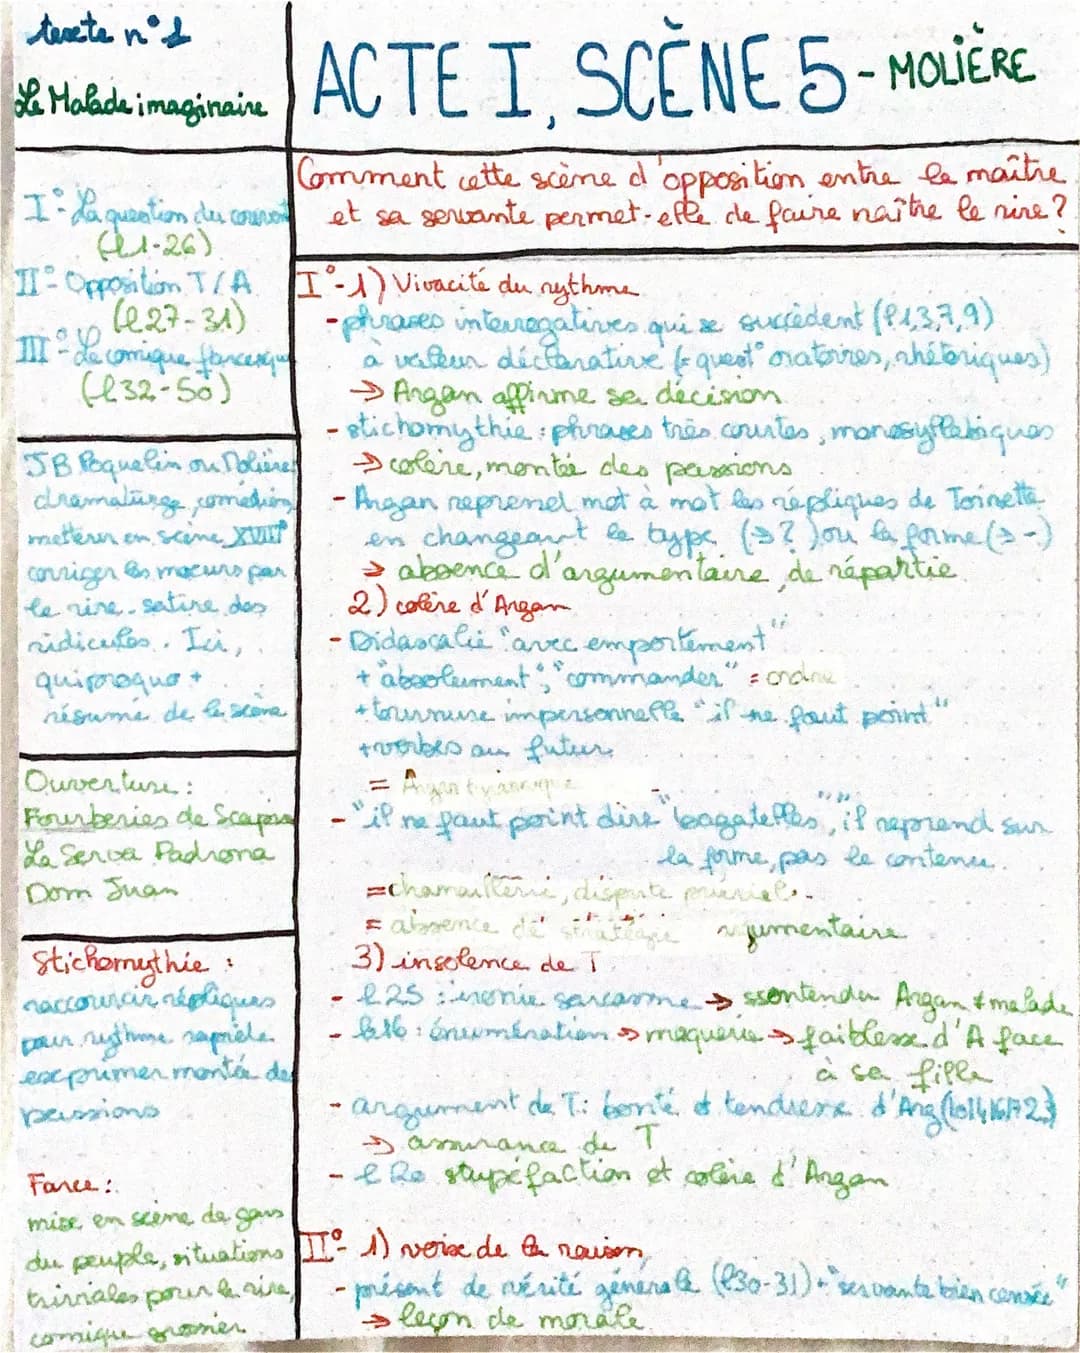 texte n°1
Le Malade imaginaire
ACTE I, SCÈNE 5 - MOLIÈRE
I° - La question du couvent
(l1-26)
II° - Opposition T/A
(l27-31)
III° - Le comique farcesque
(l32-50)
JB Poquelin ou Molière
dramaturge, comédien,
metteur en scène XVII°
corriger les moeurs par
le rire - satire des
ridicules. Ici,
quiproquo +
résumé de la scène
Ouverture :
Fourberies de Scapin
La Serva Padrona
Dom Juan
Stichomythie :
raccourcir répliques
pour rythme rapide
exprimer montée des
passions
Farce :
mise en scène de gens
du peuple, situations
triviales pour le rire,
comique grossier
Comment cette scène d'opposition entre le maître
et sa servante permet-elle de faire naître le rire ?
I° - 1) Vivacité du rythme
- phrases interrogatives qui se succèdent (l1,3,7,9)
à valeur déclarative (= quest° oratoires, rhétoriques)
→ Argan affirme sa décision
- stichomythie : phrases très courtes, monosyllabiques
→ colère, montée des passions
- Argan reprend mot à mot les répliques de Toinette
en changeant le type (→ ?) ou la forme (→ -)
→ absence d'argumentaire, de répartie
2) colère d'Argan
- Didascalie "avec emportement"
+ "absolument", "commander" = ordre
+ tournure impersonnelle "il ne faut point"
+ verbes au futur
= Argan tyrannique
- "il ne faut point dire" "bagatelles", il reprend sur
la forme, pas le contenu.
= chamaillerie, dispute puérile.
= absence de stratégie argumentaire
3) insolence de T
- l25 : ironie sarcasme → ssentendu Argan ≠ malade
- l16 : énumération → moquerie → faiblesse d'A face
à sa fille
- argument de T : bonté et tendresse d'Arg
→ assurance de T
- l20 stupéfaction et colère d'Argan
II° - 1) voix de la raison
- présent de vérité générale (l30-31) + "servante bien censée"
→ leçon de morale